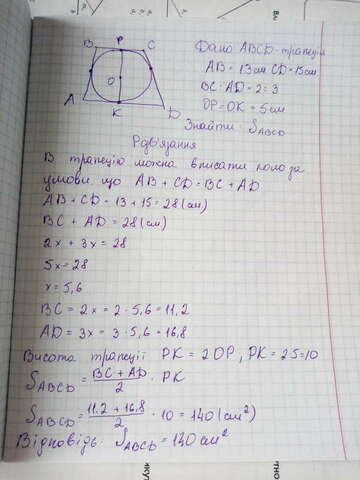 B P C
Дано ABCD-трапеція
AB = 13см CD = 15см
BC : AD = 2 : 3
O
OP = OK = 5см
A K D
Знайти: S_ABCD
Розв'язання
В трапецію можна вписати коло за
умови що AB + CD = BC + AD
AB + CD = 13 + 15 = 28 (см)
BC + AD = 28 (см)
2x + 3x = 28
5x = 28
x = 5,6
BC = 2x = 2 · 5,6 = 11,2
AD = 3x = 3 · 5,6 = 16,8
Висота трапеції PK = 2OP, PK = 2·5=10
S_ABCD = (BC + AD)/2 · PK
S_ABCD = (11,2 + 16,8)/2 · 10 = 140 (см²)
Відповідь: S_ABCD = 140 см²